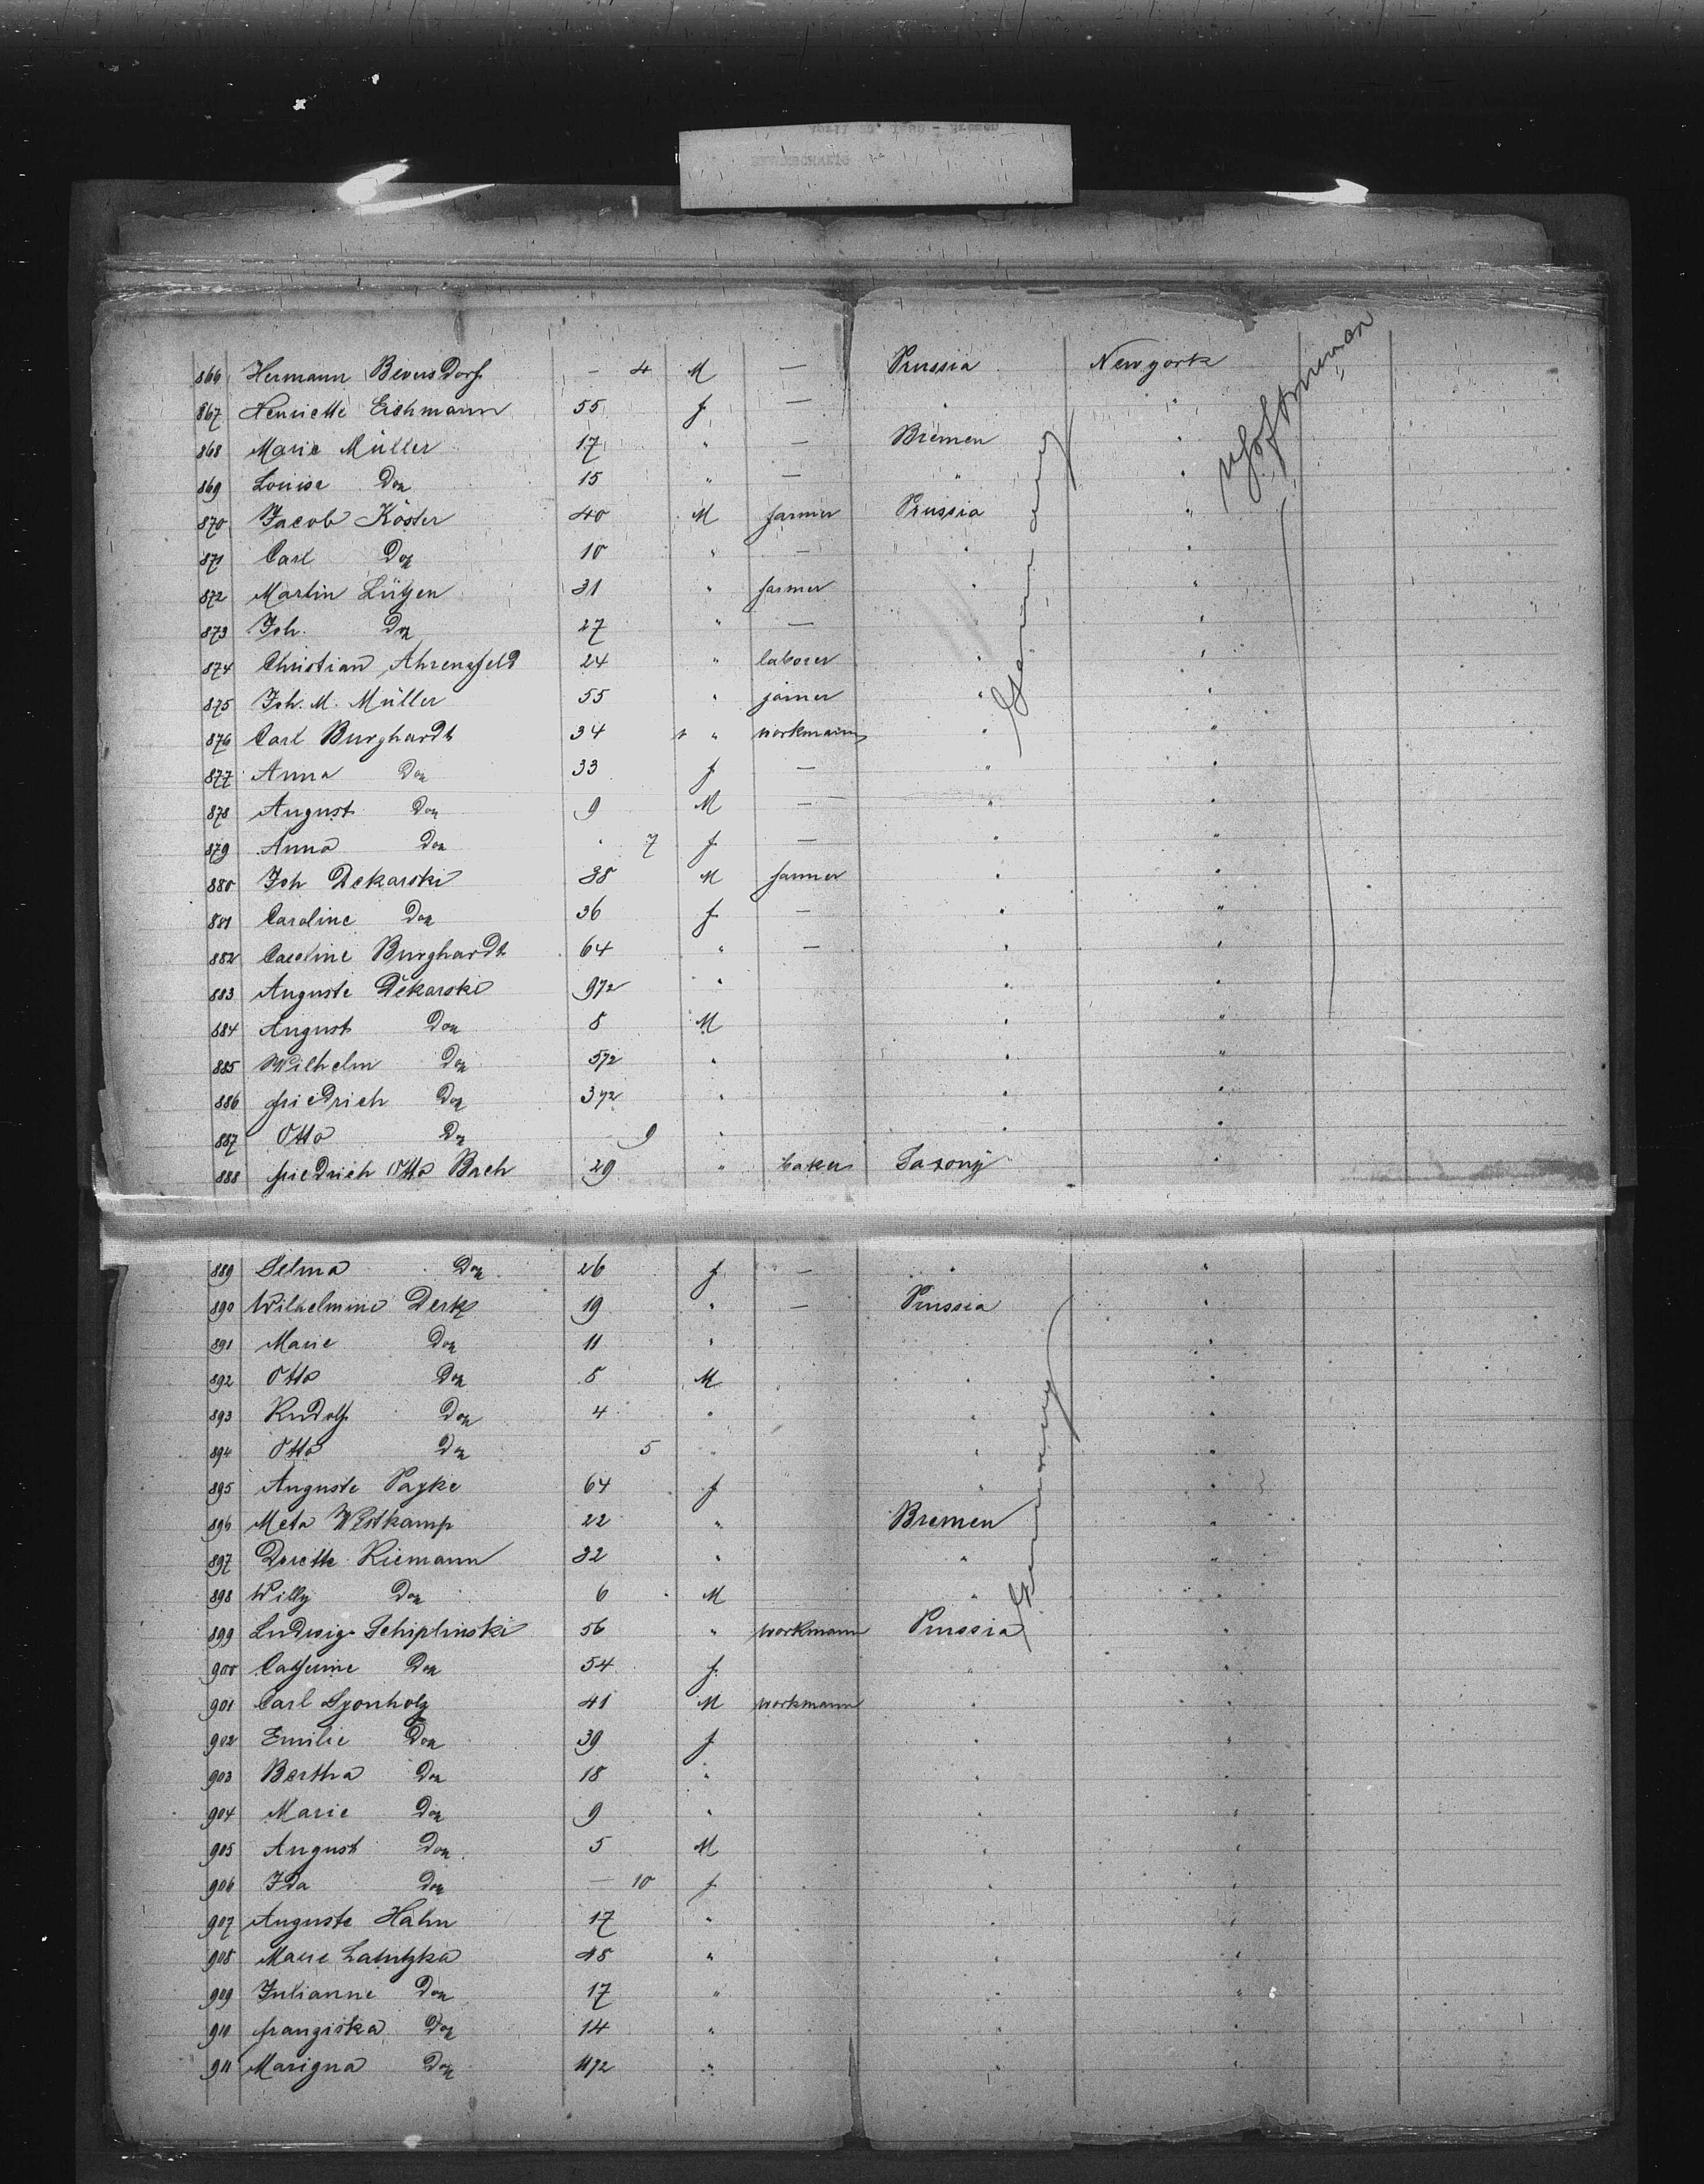 866 Hermann Beversdorf - 4 M — Prussia Newyork
867 Henriette Eichmann 55 f — " "
868 Marie Müller 17 " — Bremen "
869 Louise Do 15 " — " "
870 Jacob Köster 40 M farmer Prussia "
871 Carl Do 10 " — " "
872 Martin Lütjen 31 " farmer " "
873 Joh. Do 27 " — " "
874 Christian Ahrensfeld 24 " laborer " "
875 Joh. M. Müller 55 " joiner " "
876 Carl Burghardt 34 " workmann " "
877 Anna Do 33 f — " "
878 August Do 9 M — " "
879 Anna Do " 7 f — " "
880 Joh Dekarski 38 M farmer " "
881 Caroline Do 36 f — " "
882 Caroline Burghardt 64 " — " "
883 Auguste Dekarski 9 1/2 " " "
884 August Do 8 M " "
885 Wilhelm Do 5 1/2 " " "
886 friedrich Do 3 1/2 " " "
887 Otto Do - 9 " " "
888 friedrich Otto Bach 29 " baker Saxony "
Germany
889 Selma Do 26 f — " "
890 Wilhelmine Derk 19 " — Prussia "
891 Marie Do 11 " " "
892 Otto Do 8 M " "
893 Rudolf Do 4 " " "
894 Otto Do 5 " " "
895 Auguste 64 f " "
896 Meta Westkamp 22 " Bremen "
897 Dorette Riemann 32 " " "
898 Willy Do 6 M " "
899 Ludwig Schiplinski 56 " workmann Prussia "
900 Catherine Do 54 f " "
901 Carl 41 M workmann " "
902 Emilie Do 39 f " "
903 Bertha Do 18 " " "
904 Marie Do 9 " " "
905 August Do 5 M " "
906 Ida Do — 10 f " "
907 Auguste Hahn 17 " " "
908 Marie 48 " " "
909 Julianne Do 17 " " "
910 franziska Do 14 " " "
911 Marigna Do 11 1/2 " " "
Germany